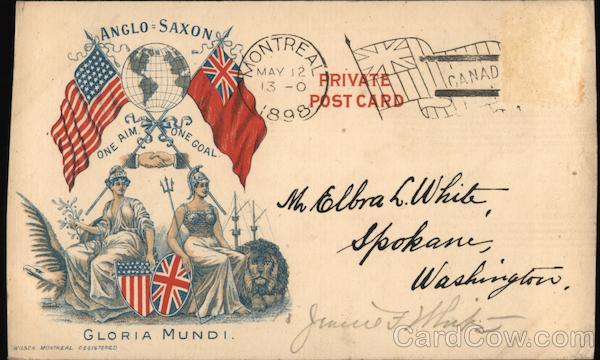 ANGLO=SAXON
ONE AIM. ONE GOAL.
GLORIA MUNDI.
WILSON MONTREAL REGISTERED
MONTREAL
MAY 12
13-0
1898
PRIVATE
POST CARD
CANAD
Mr Elbra L. White,
Spokane,
Washington.
CardCow.com